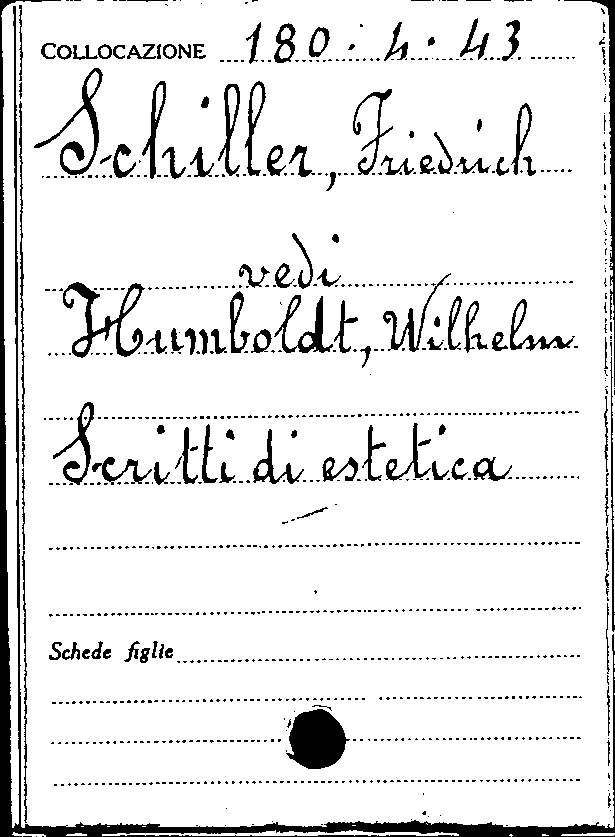 COLLOCAZIONE 180. 4. 43
Schiller, Friedrich
vedi
Humboldt, Wilhelm
Scritti di estetica
Schede figlie